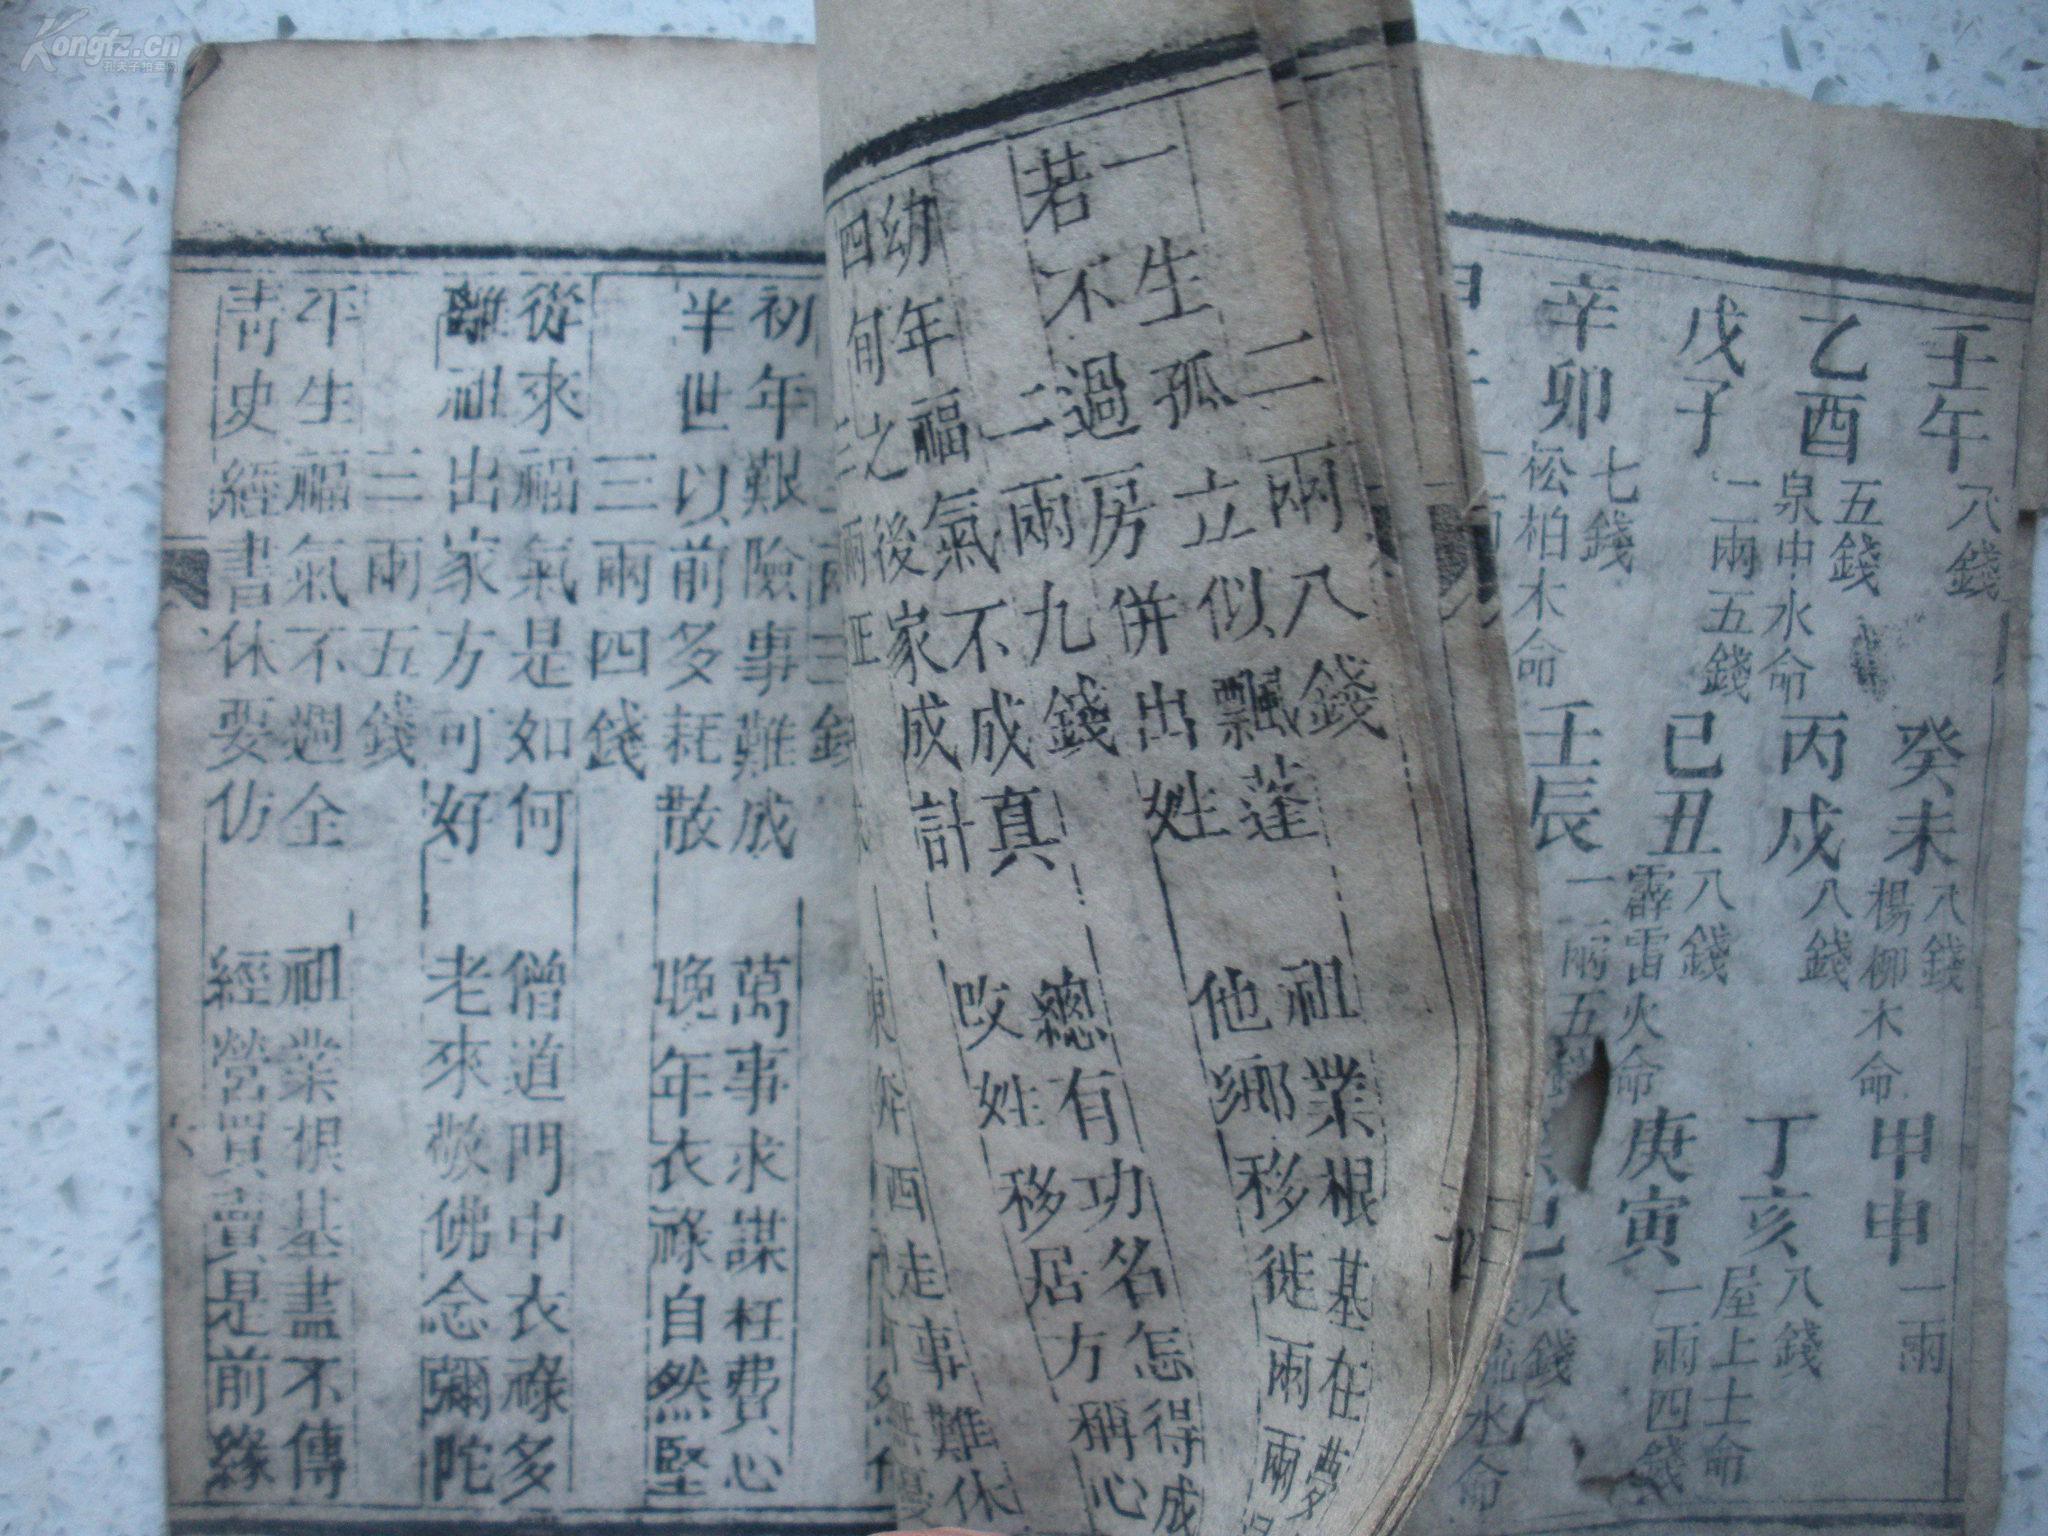 Kongfz.cn
孔夫子拍卖网
壬午 八錢
癸未 八錢
楊柳木命
甲申 一兩
乙酉 五錢
泉中水命
丙戌 八錢
丁亥 八錢
屋上土命
戊子 一兩五錢
己丑 八錢
霹雷火命
庚寅 一兩四錢
辛卯 七錢
松柏木命
壬辰 一兩五
巳 八錢
流水命
二兩八錢
一生孤立似飄蓬 祖業根基在夢
若不過房併出姓 他鄉移徙兩兩
二兩九錢
幼年福氣不成真 總有功名怎得成
四旬之後家成計 改姓移居方稱心
三兩正
東奔西走事難休
三兩三錢
初年艱險事難成 萬事求謀枉費心
半世以前多耗散 晚年衣祿自然堅
三兩四錢
從來福氣是如何 僧道門中衣祿多
離祖出家方可好 老來敬佛念彌陀
三兩五錢
平生福氣不週全 祖業根基盡不傳
青史經書休要仿 經營買賣是前緣